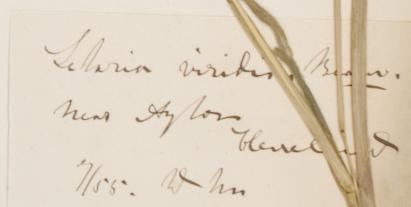 Setaria viridis. Beauv.
near Ayton
Cleveland
9/55. W M